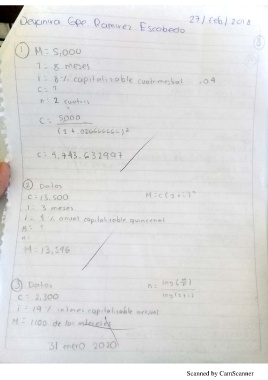 Deyanira Gpe Ramirez Escobedo
27/feb/2018
① M = 5,000
t = 8 meses
i = 8% capitalizable cuatrimestral
C = ?
n = 2
C = 5000
(1 + .02666666)²
C = 4,743.632997
② Datos
C = 13,500
M = C(1+i)ⁿ
t = 3 meses
i = % anual capitalizable quincenal
M = ?
n =
M = 13,596
③ Datos
C = 2,300
i = 19% interes capitalizable
M = 1100 de los intereses
31 enero 2020
Scanned by CamScanner